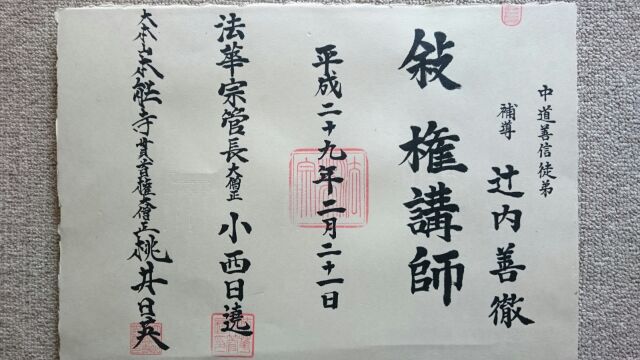 中道善信徒弟
補導 辻内善徹
敍権講師
平成二十九年二月二十一日
法華宗管長大僧正 小西日遶
大本山本能寺貫首権大僧正桃井日英